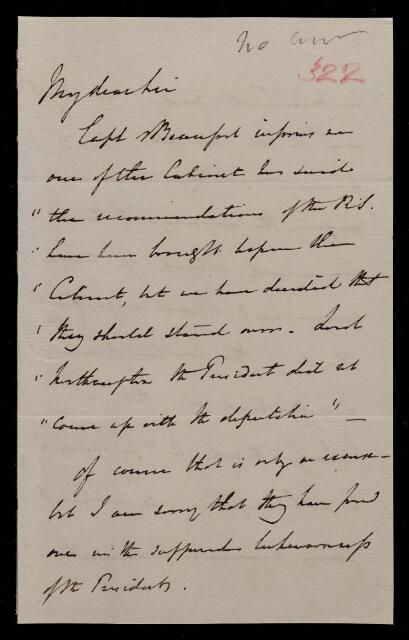 No answr
322
My dear Sir
Capt Beaufort informs me
one of the Cabinet has said
"the recommendations of the R.S.
" have been brought before the
" Cabinet, but we have decided that
" they should stand over. Lord
" Northampton the President did not
" come up with the deputation" —
Of course that is only an excuse —
but I am sorry that they have found
one in the supposed lukewarmness
of the Presidents.